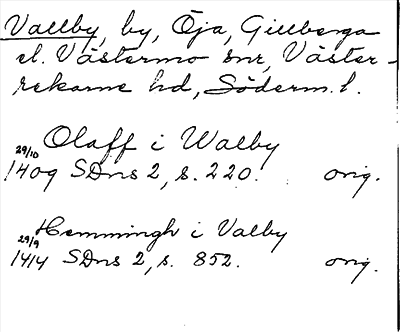 Vallby, by, Öja, Gillberga
el. Västermo snr, Väster-
rekarne hd, Söderm. l.
Olaff i Walby
29/10
1409 SDns 2, s. 220. orig.
Hemmingh i Valby
29/9
1414 SDns 2, s. 852. orig.